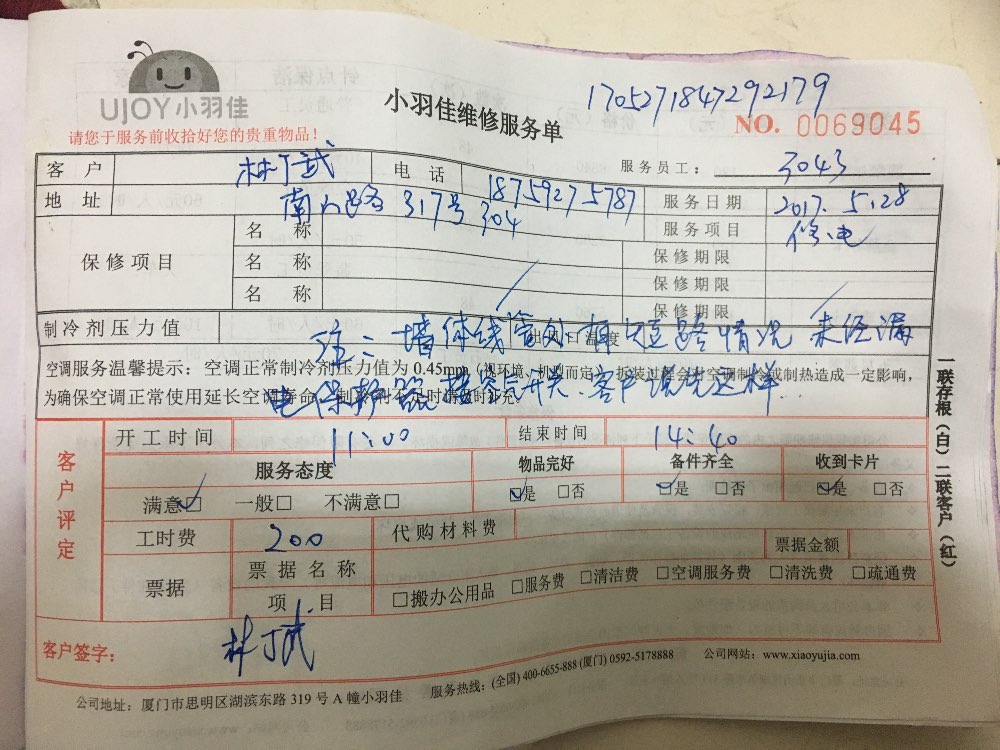 UJOY小羽佳
小羽佳维修服务单
1705271847292179
请您于服务前收拾好您的贵重物品！
NO. 0069045
客户 林丁武 电话 18759275787 服务员工： 3043
地址 南山路 317号 304 服务日期 2017. 5.28
保修项目 名称 服务项目 修电
名称 保修期限
名称 保修期限
保修期限
制冷剂压力值 出风口温度
注：墙体线管处有短路情况 未经漏
电保护器 接空气开关.客户说先这样.
空调服务温馨提示：空调正常制冷剂压力值为 0.45mpa（视环境、机型而定），拆装过程会对空调制冷或制热造成一定影响，
为确保空调正常使用延长空调寿命，制冷剂不足时请及时补充。
客户评定
开工时间 11:00 结束时间 14:40
服务态度 物品完好 备件齐全 收到卡片
满意☑ 一般□ 不满意□ ☑是 □否 ☑是 □否 ☑是 □否
工时费 200 代购材料费
票据 票据名称 票据金额
项目 □搬办公用品 □服务费 □清洁费 □空调服务费 □清洗费 □疏通费
客户签字： 林丁武
公司地址：厦门市思明区湖滨东路 319 号 A 幢小羽佳 服务热线：(全国) 400-6655-888 (厦门) 0592-5178888 公司网站：www.xiaoyujia.com
一联存根（白）二联客户（红）